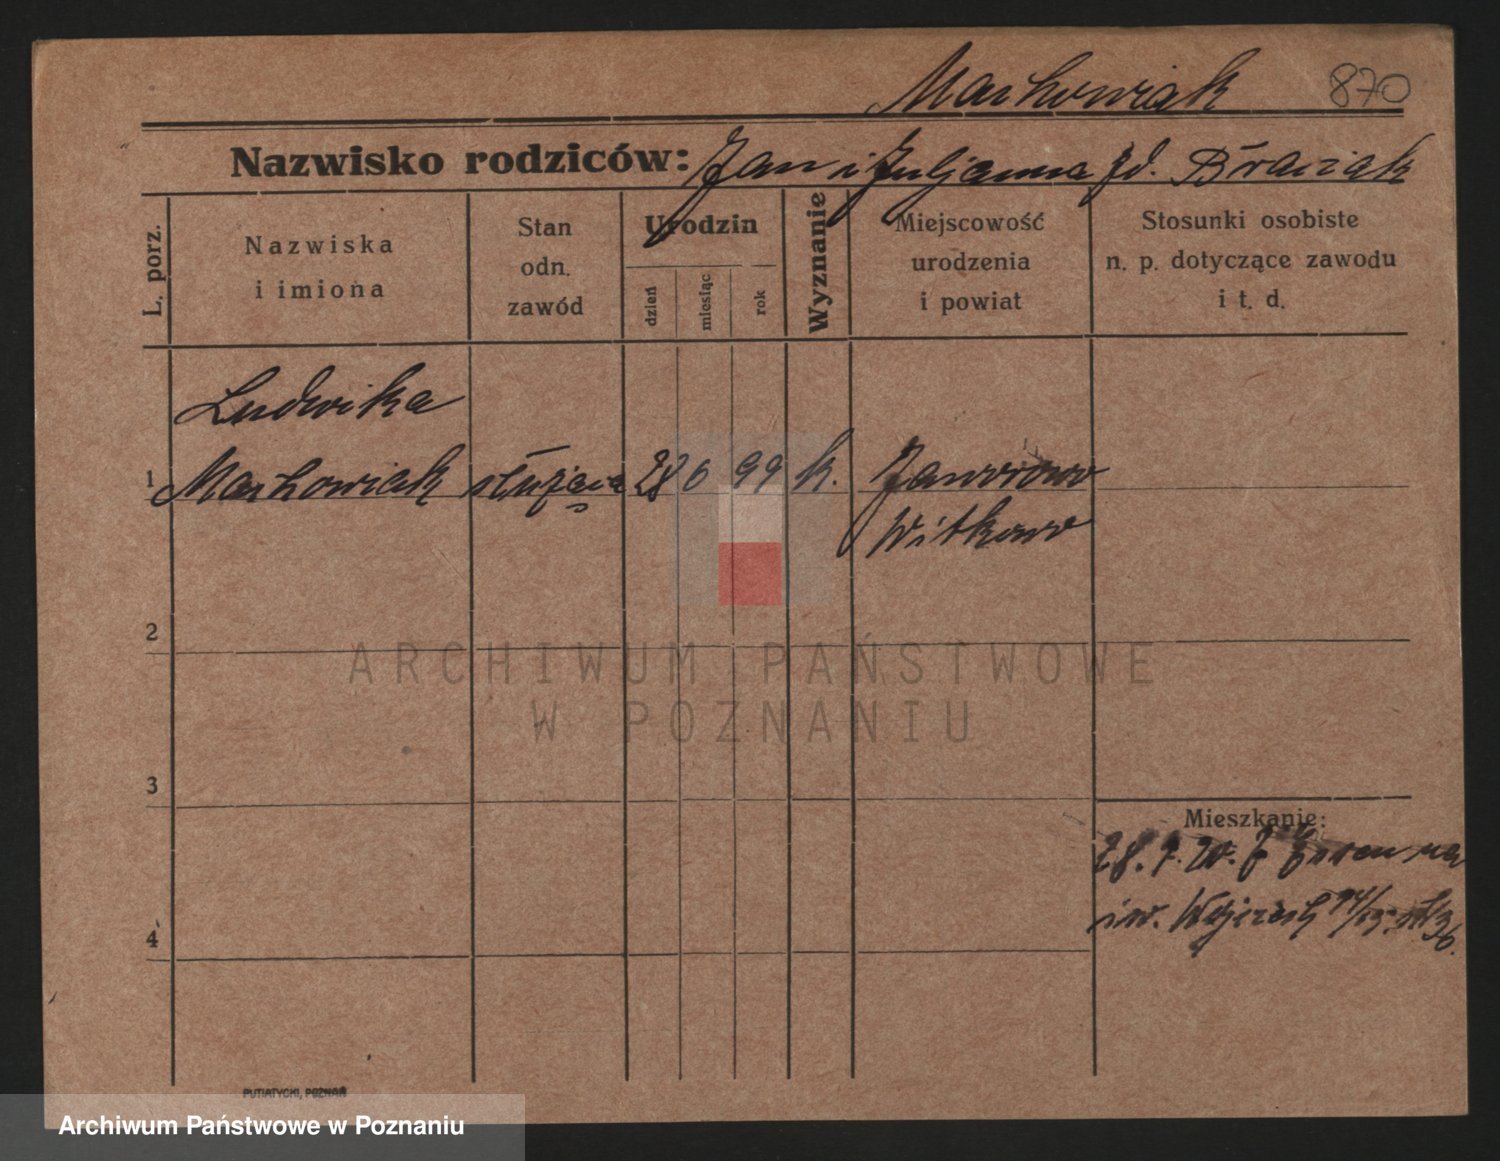 Markowiak 870
Nazwisko rodziców: Jan i Juljanna zd. Braciak
L. porz.
Nazwiska
i imiona
Stan
odn.
zawód
Urodzin
dzień
miesiąc
rok
Wyznanie
Miejscowość
urodzenia
i powiat
Stosunki osobiste
n. p. dotyczące zawodu
i t. d.
Ludwika
1 Markowiak służąca 28 6 99 k. Jaworowo
Witkowo
2
ARCHIWUM PAŃSTWOWE
W POZNANIU
3
Mieszkanie:
28. 9. 20.
św. Wojciech
4
PUTIATYCKI, POZNAŃ
Archiwum Państwowe w Poznaniu